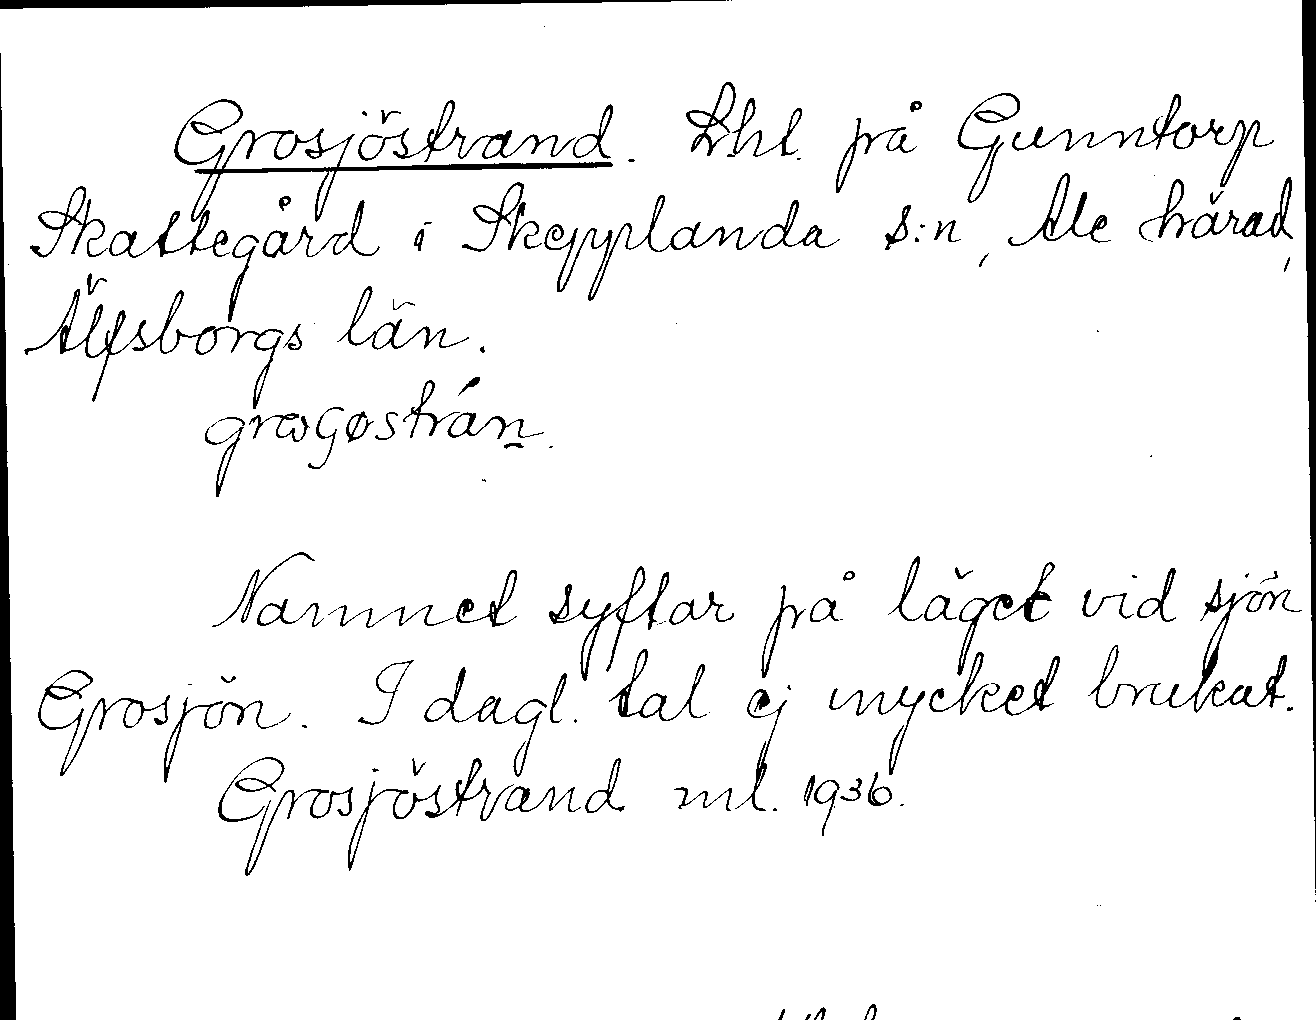 Grosjöstrand. Lht. på Gunntorp
Skattegård i Skepplanda s:n, Ale härad,
Älfsborgs län.
Namnet syftar på läget vid sjön
Grosjön. I dagl. tal ej mycket brukat.
Grosjöstrand ml. 1936.